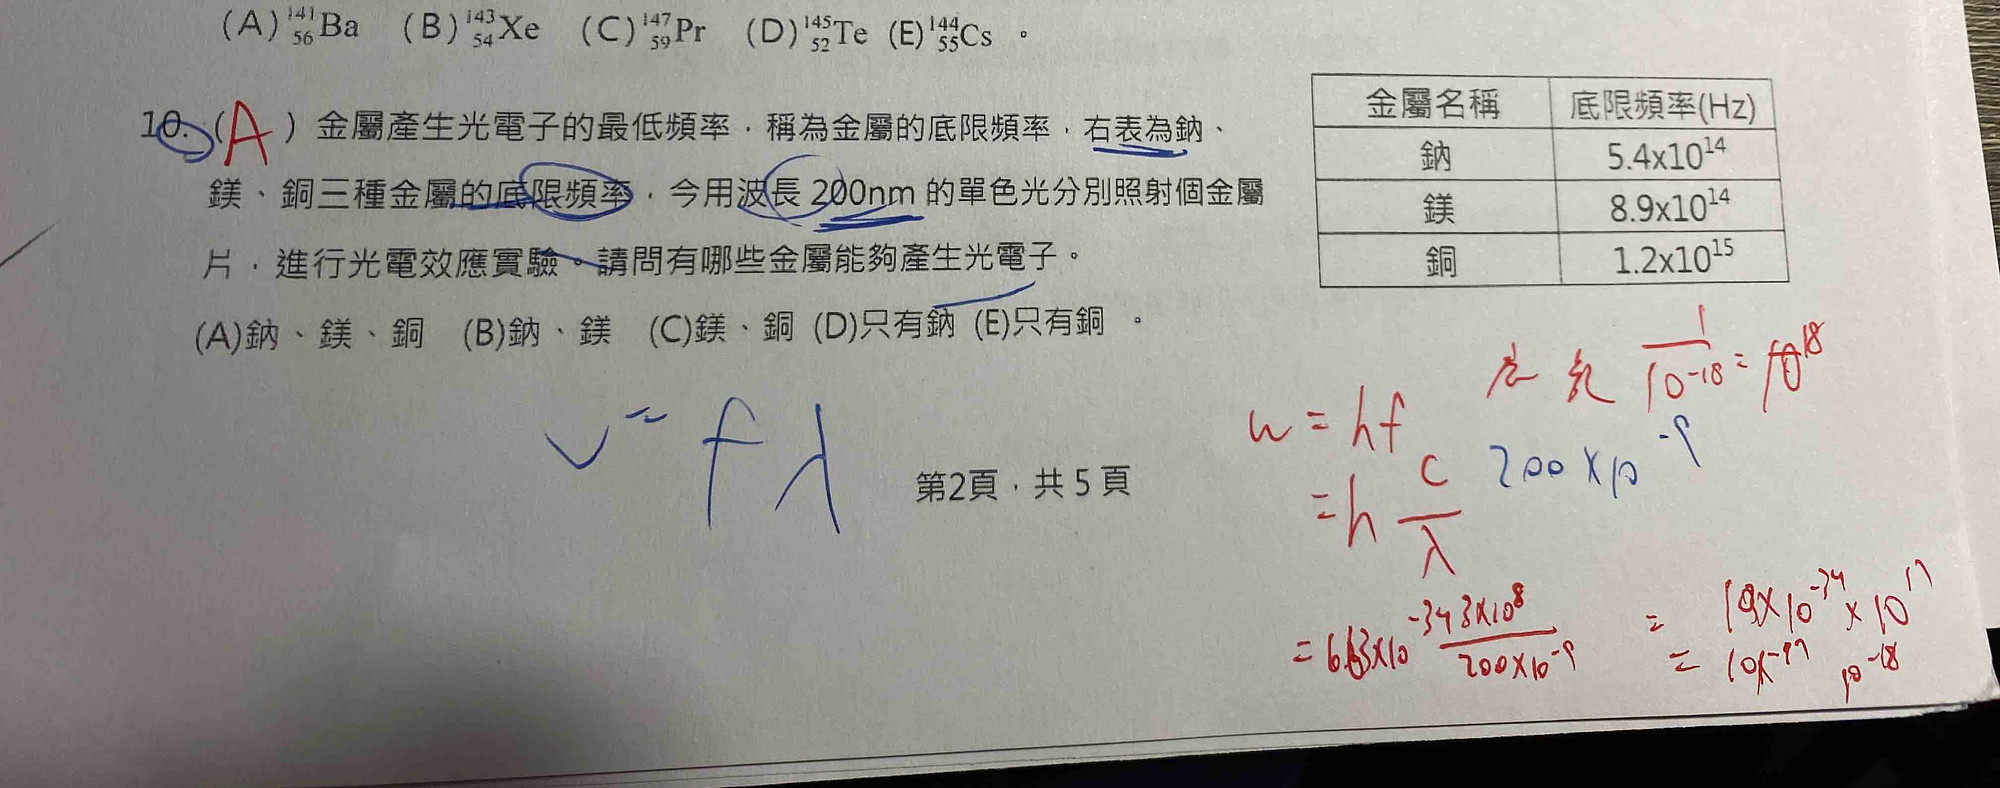 (A) ¹⁴¹₅₆Ba (B) ¹⁴³₅₄Xe (C) ¹⁴⁷₅₉Pr (D) ¹⁴⁵₅₂Te (E) ¹⁴⁴₅₅Cs。
10. (A) 金屬產生光電子的最低頻率，稱為金屬的底限頻率，右表為鈉、
鎂、銅三種金屬的底限頻率，今用波長 200nm 的單色光分別照射個金屬
片，進行光電效應實驗。請問有哪些金屬能夠產生光電子。
(A)鈉、鎂、銅 (B)鈉、鎂 (C)鎂、銅 (D)只有鈉 (E)只有銅。
金屬名稱 底限頻率(Hz)
鈉 5.4x10¹⁴
鎂 8.9x10¹⁴
銅 1.2x10¹⁵
v = fλ
1/10⁻¹⁸ = 10¹⁸
w = hf
200×10⁻⁹
= h c/λ
第2頁，共 5 頁